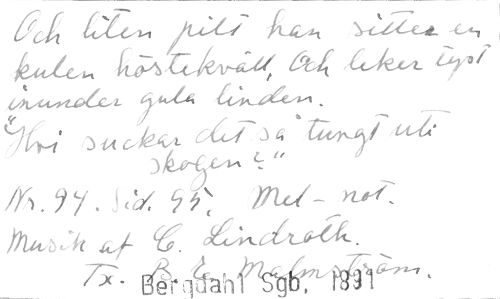 Och liten pilt han sitter en
kulen höstekväll, Och leker tyst
inunder gula linden.
"Hvi suckar det så tungt uti
skogen?"
Nr. 94. Sid. 95. Mel-not.
Musik af C. Lindroth.
Tx. B. E. Malmström.
Bergdahl Sgb. 1891